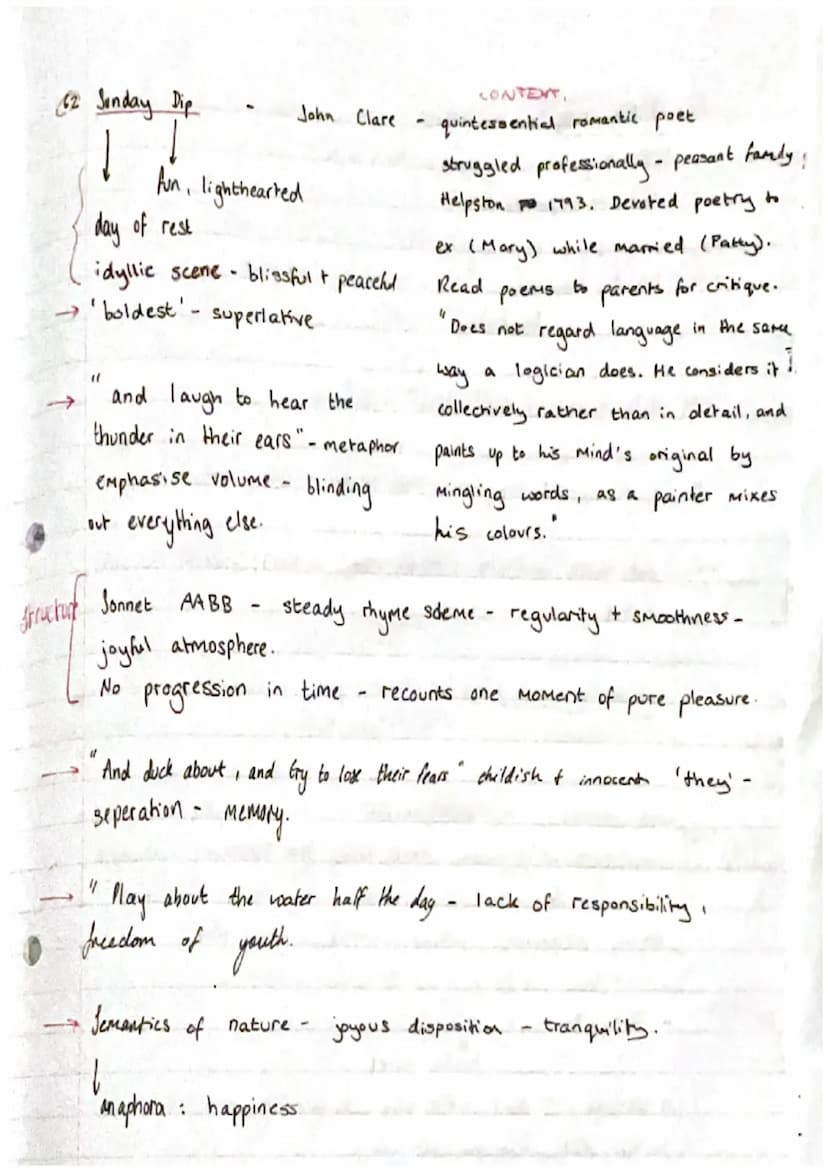 62 Sunday Dip - John Clare -
CONTEXT.
quintessential romantic poet
struggled professionally - peasant family
Helpston 1793. Devoted poetry to
ex (Mary) while married (Patty).
Read poems to parents for critique.
"Does not regard language in the same
way a logician does. He considers it
collectively rather than in detail, and
paints up to his mind's original by
mingling words, as a painter mixes
his colours."
fun, lighthearted
day of rest
idyllic scene - blissful + peaceful
→ 'boldest' - superlative
→ "and laugh to hear the
thunder in their ears" - metaphor
emphasise volume - blinding
out everything else.
structure
Sonnet AABB - steady rhyme sdeme - regularity + smoothness -
joyful atmosphere.
No progression in time - recounts one moment of pure pleasure.
→ "And duck about, and try to lose their fears" childish + innocent 'they' -
seperation - memory.
→ "Play about the water half the day - lack of responsibility,
freedom of youth.
→ Semantics of nature - joyous disposition - tranquility.
anaphora : happiness